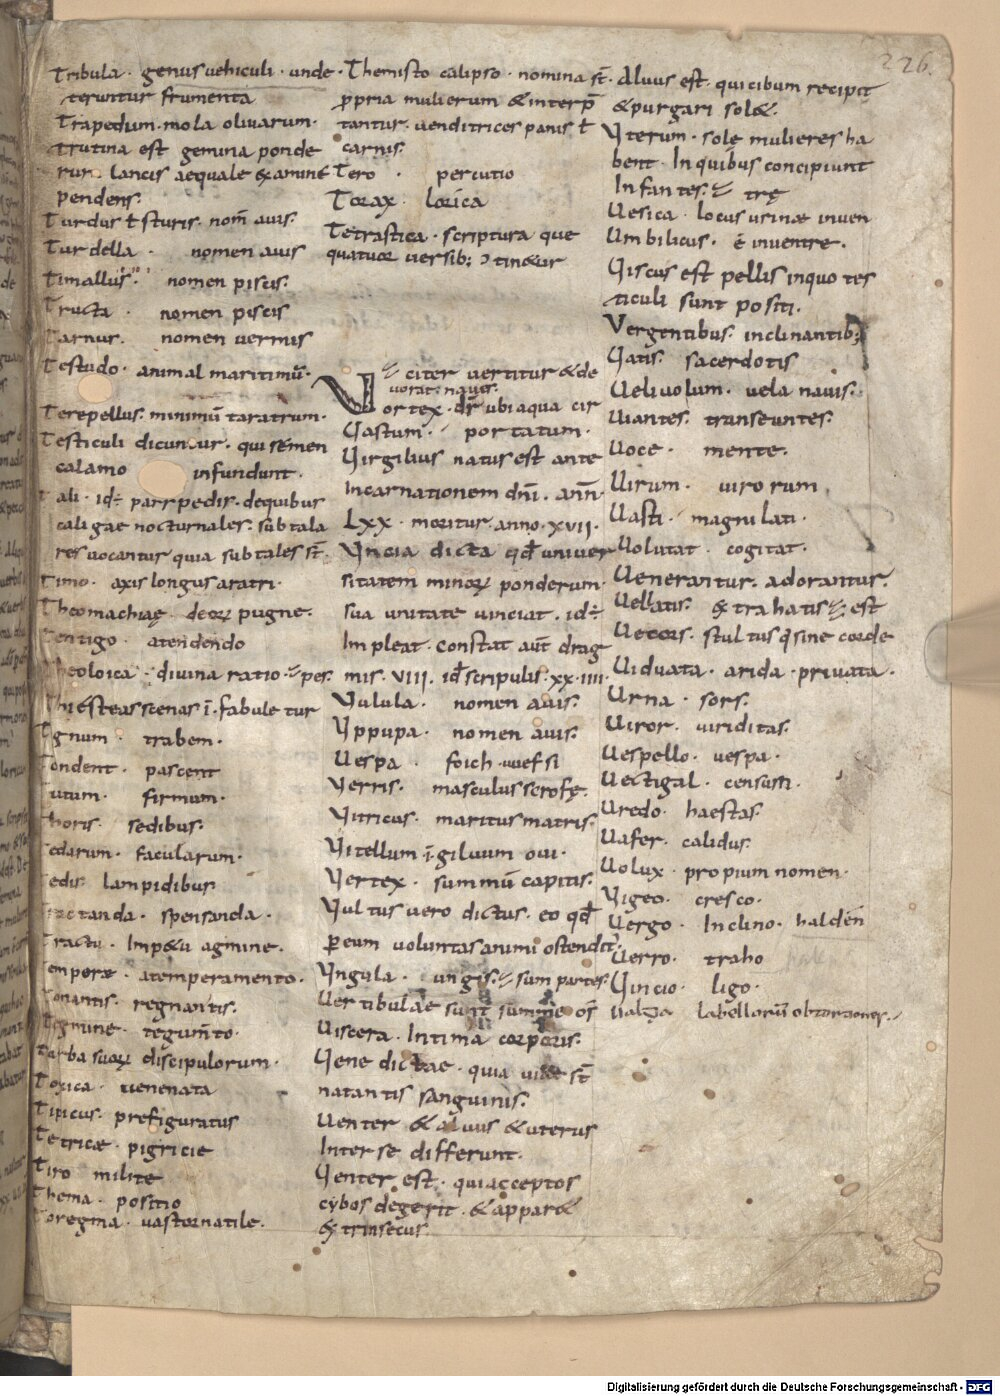 226.
Tribula · genus uehiculi · unde
teruntur frumenta
Trapedum · mola oliuarum ·
trutina est gemina ponde
rum lancis aequale examine
pendens.
Turdus ł sturis · nom̄ auis.
Turdella · nomen auis
Timallus · nomen piscis.
Tructa · nomen piscis
Tarnus. nomen vermis
Testudo · animal maritimū.
Terepellus. minimū taratrum.
Testiculi dicuntur · qui semen
calamo infundunt.
Tali · id÷ pars pedis · de quibus
caligae nocturnales. subtala
res uocantur quia sub tales st̄.
Timo · axis longus aratri.
Theomachiaę · deorꝝ pugne.
Tentigo · atendendo
Theoloica · diuina ratio
Thiesteas scenas · i · fabule tur
pes.
Tignum · trabem.
Tondent · pascent
Tutum · firmum.
Thoris · sedibus.
Tedarum · facularum.
Tedis lampidibus
Tractanda · spensanda.
Tractu · Imp&u agmine.
Temporæ · atemperamento.
Tonantis · regnantis.
Tegmine · tegum̄to.
Turba suorꝝ discipulorum.
Toxica · uenenata
Tipicus · prefiguratus
Tetricæ · pigricie
Tiro milite
Thema · positio
Toregma · uastornatile.
Themisto calipso · nomina st̄
ꝓpria mulierum & interp̄
tantur · uenditrices panis ł
carnis.
Tero · percutio
Torax · lorica
Tetrastica · scriptura que
quatuor uersib; ↄtin&ur
U citer uertitur & de
uorat naues.
ortex · dr̄ ubi aqua cir
Gastum · portatum.
Virgilius natus est ante
Incarnationem dn̄i · ann̄
Lxx · moritur anno · xvii.
Vncia dicta qđ uniuer
sitatem minorꝝ ponderum.
sua unitate uinciat · id÷
Impleat · constat aut̄ drag
mis · viii · id÷ scripulis · xx · iiii ·
Vulula · nomen auis.
Vppupa · nomen auis.
Uespa · foich uuefsi
Verris · masculus scrofę.
Vitricus · maritus matris.
Vitellum · i · giluum oui.
Vertex · summū capitis.
Vultus uero dictus · eo qđ
per eum uoluntas animi ostendit̄.
Vngula · ungis. sum partes
Uertibulae sunt summe os̄
Uiscera · Intima corporis.
Vene dictae · quia uiae st̄
natantis sanguinis.
Uenter & aluus & uterus
Inter se differunt.
Venter est · qui acceptos
cybos degerit · & appar&
extrinsecus.
Aluus est · qui cibum recipit
& purgari sol&.
Yterum · solę mulieres ha
bent · In quibus concipiunt
Infantes. trę
Uesica · locus urinæ inuen
Umbilicus · ē inuentre.
Viscus est pellis inquo tes
ticuli sunt positi.
Vergentibus · inclinantib;
Vatis · sacerdotis
Ueliuolum · uela nauis.
Uiantes · transeuntes.
Uoce · mente.
Uirum · uirorum
Uasti · magni lati.
Uolutat · cogitat.
Uenerantur · adorantur.
Uellatis · extrahatis est
Uecors · stultus q̇ sine corde
Uiduata · arida · priuata.
Urna · sors.
Uiror · uiriditas.
Uespello · uespa.
Uectigal · censum.
Uredo · haestas.
Uafer · calidus
Uolux · propium nomen.
Vigeo · cresco.
Uergo · Inclino · haldén
Uerro · traho
Vincio · ligo.
Ualza labellarū obtorsiones.
Digitalisierung gefördert durch die Deutsche Forschungsgemeinschaft - DFG